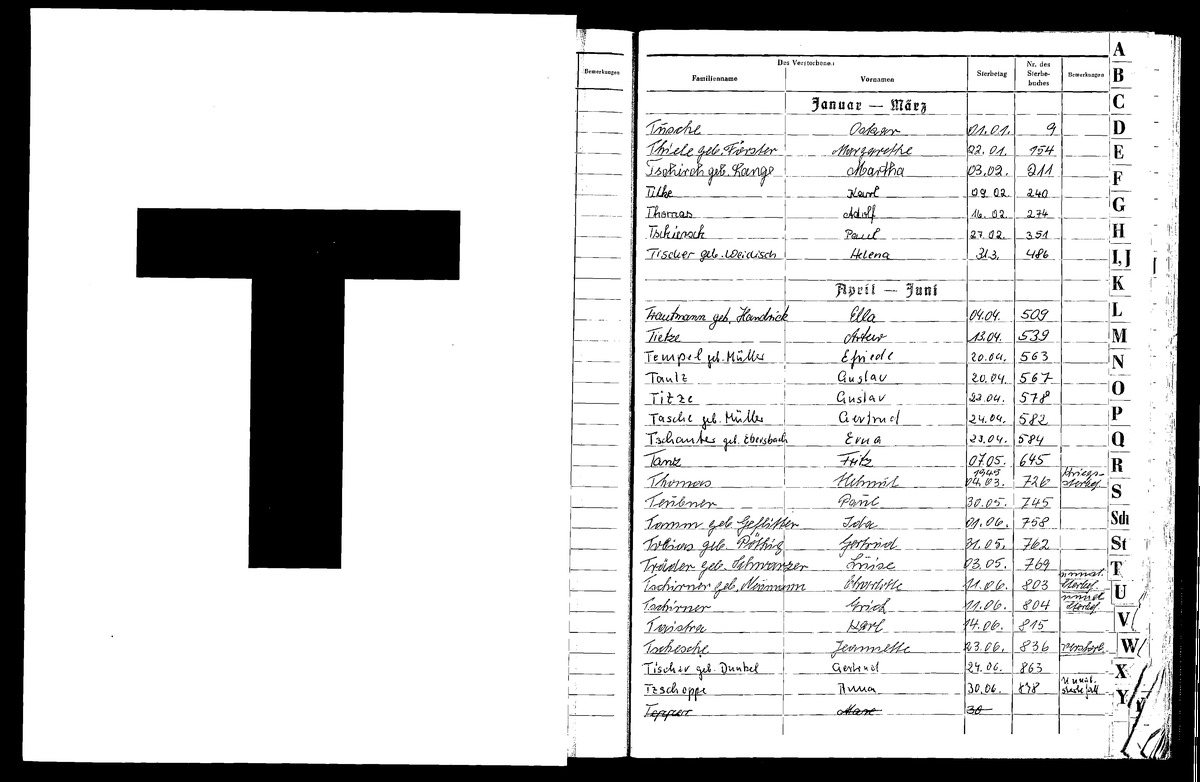 T
Bemerkungen
Des Verstorbenen
Familienname Vornamen Sterbetag Nr. des Sterbe-buches Bemerkungen
Januar — März
Tusche Oskar 01.01. 9
Thiele geb. Förster Margarethe 22.01. 154
Tschirch geb. Range Martha 03.02. 211
Tilke Karl 09.02. 240
Thomas Adolf 16.02. 274
Tschirsch Paul 27.02. 351
Tischer geb. Weidisch Helena 31.3. 486
April — Juni
Trautmann geb. Handrick Ella 04.04. 509
Tietze Artur 13.04. 539
Tempel geb. Müller Efriede 20.04. 563
Tautz Gustav 20.04. 567
Titze Gustav 22.04. 578
Tasche geb. Müller Gertrud 24.04. 582
Tschanter geb. Ebersbach Erna 23.04. 584
Tanz Fritz 07.05. 645
Thomas Helmut 1945 04.03. 726
Teubner Paul 30.05. 745
Tamm geb. Ida 01.06. 758
Tobias geb. Gertrud 31.05. 762
Träder geb. Schwanzer Luise 03.05. 769
Tschirner geb. 11.06. 803
Tschirner Erich 11.06. 804
Karl 14.06. 815
Tschesche Jeannette 23.06. 836
Tischer geb. Dunkel Gertrud 24.06. 863
Tzschoppe Anna 30.06. 878
Tepper 30
A
B
C
D
E
F
G
H
I, J
K
L
M
N
O
P
Q
R
S
Sch
St
T
U
V
W
X
Y